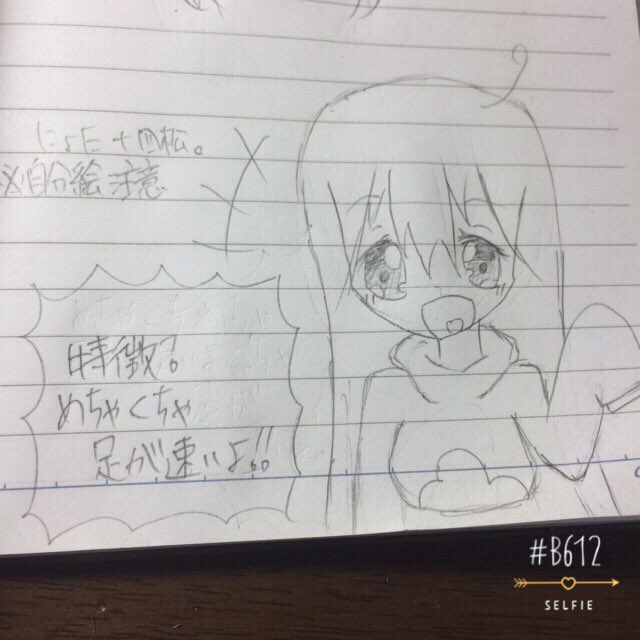 にょた十四松。
※自分絵注意
特徴。
めちゃくちゃ
足が速いよ!!
#B612
SELFIE